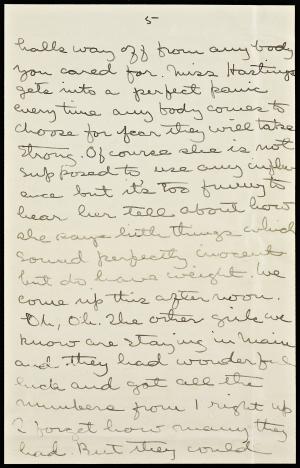 5
halls way off from any body
you cared for. Miss Hastings
gets into a perfect panic
everytime any body comes to
choose for fear they will take
strong. Of course she is not
supposed to use any influ
ence but it's too funny to
hear her tell about how
she says little things which
sound perfectly inocent
but do have weight. We
come up this after noon.
Oh, Oh. The other girls we
know are staying in main
and. They had wonderful
luck and got all the
numbers from 1 right up
I forget how many they
had. But they could